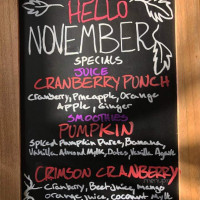 HELLO
NOVEMBER
SPECIALS
JUICE
CRANBERRY PUNCH
Cranberry, Pineapple, Orange
Apple, Ginger
SMOOTHIES
PUMPKIN
Spiced Pumpkin Puree, Banana,
Vanilla Almond Mylk, Dates, Vanilla, Agave
CRIMSON CRANBERRY
Cranberry, Beet Juice, Mango
orange juice, coconut mylk